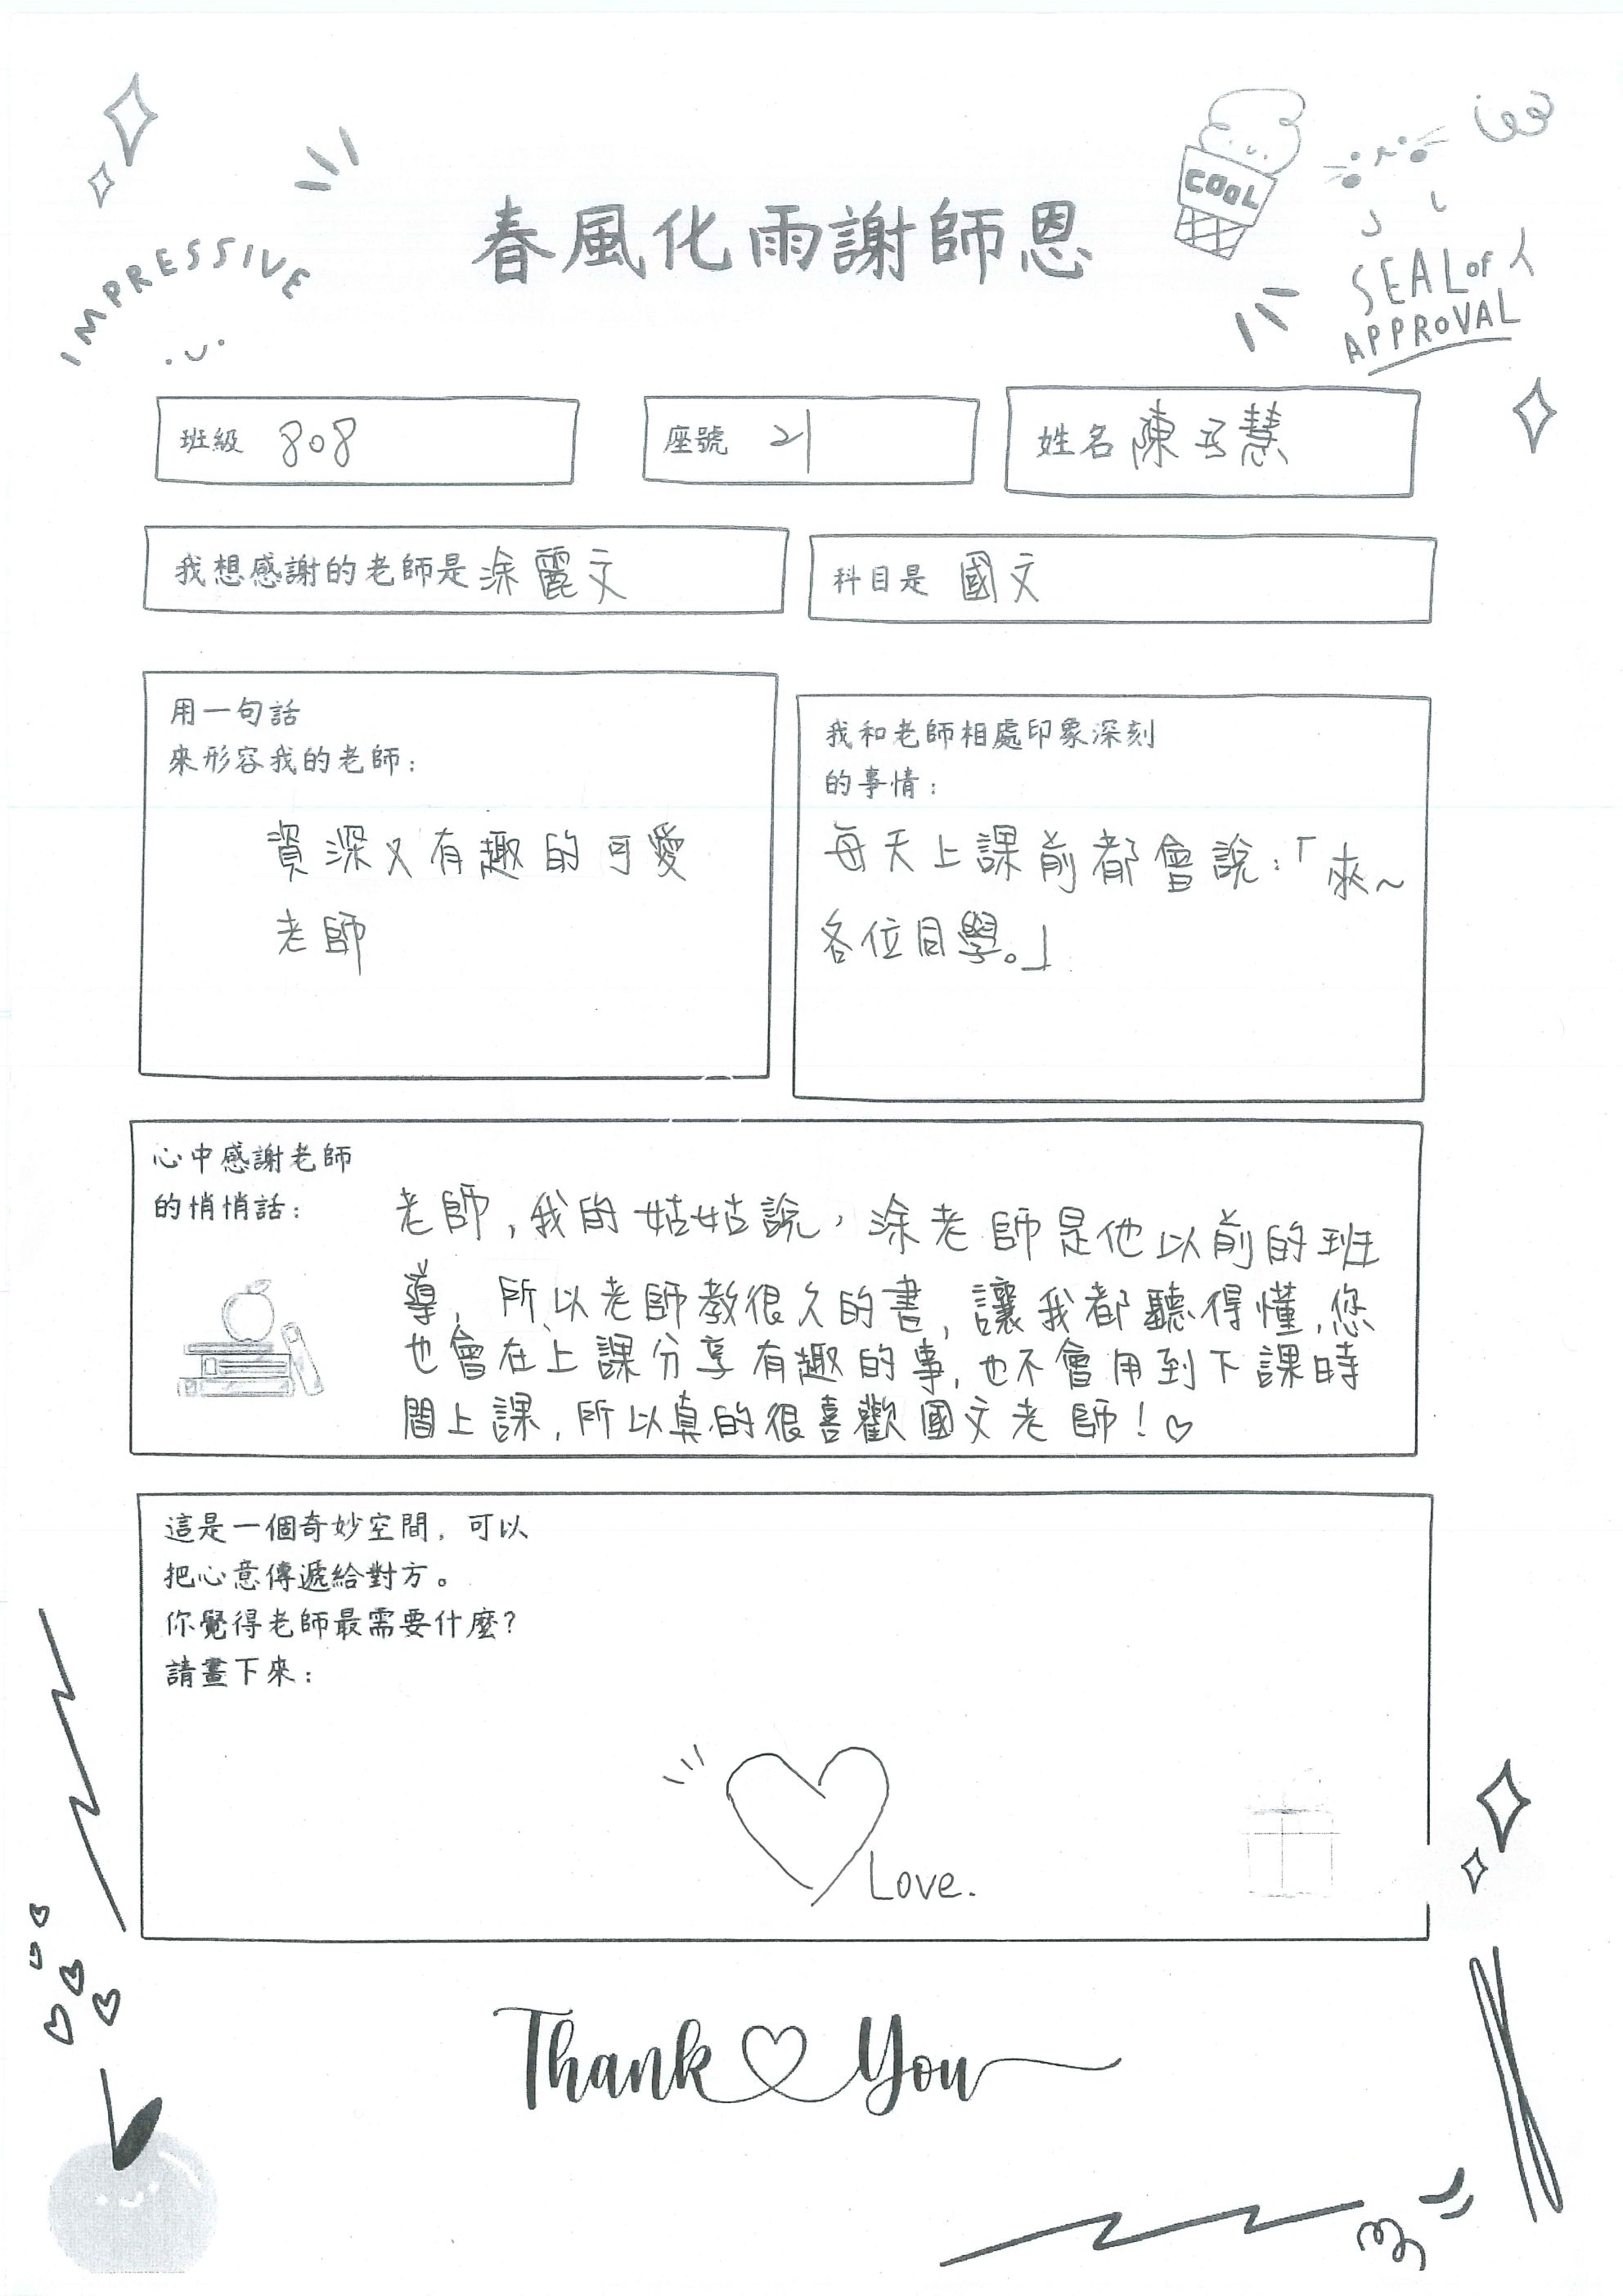 IMPRESSIVE
春風化雨謝師恩
COOL
SEAL OF
APPROVAL
班級 808
座號 21
姓名 陳 慧
我想感謝的老師是 涂麗文
科目是 國文
用一句話
來形容我的老師:
資深又有趣的可愛
老師
我和老師相處印象深刻
的事情:
每天上課前都會說:「來~
各位同學。」
心中感謝老師
的悄悄話:
老師,我的姑姑說,涂老師是他以前的班
導,所以老師教很久的書,讓我都聽得懂,您
也會在上課分享有趣的事,也不會用到下課時
間上課,所以真的很喜歡國文老師!♡
這是一個奇妙空間,可以
把心意傳遞給對方。
你覺得老師最需要什麼?
請畫下來:
Love.
Thank You